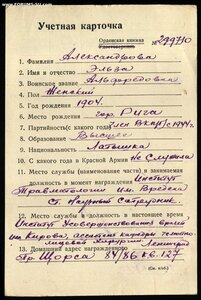 FORUMS-SU.COM
Учетная карточка
Орденская книжка
Удостоверение № 299710
1. Фамилия Александрова
2. Имя и отчество Эльза
Альфредовна
3. Воинское звание
4. Пол Женский
5. Год рождения 1904.
6. Место рождения гор. Рига
7. Партийность (с какого года) Член ВКП(б) с 1944 г.
8. Образование Высшее
9. Национальность Латышка
10. С какого года в Красной Армии Не служила
11. Место службы (наименование части) и занимаемая
должность в момент награждения Институт
Травматологии им. Вредена
Ст. Научный Сотрудник
12. Место службы и должность в настоящее время
Институт Усовершенствования врачей
им. Кирова, ассистент кафедры челюстно-
лицевой хирургии
13. Домашний адрес награжденного Ленинград
Пр. Щорса 84/86 кв. 127
(См. н/об.)